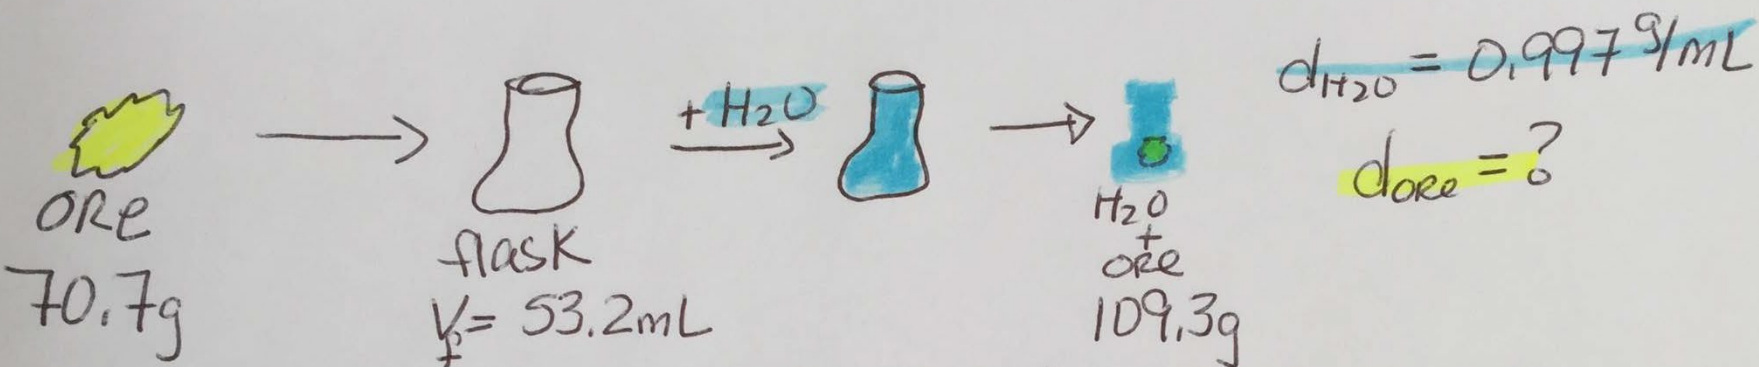 ORe
70.7g
flask
Vf = 53.2mL
+ H2O
H2O
+
ORe
109.3g
dH2O = 0.997 g/mL
dORe = ?